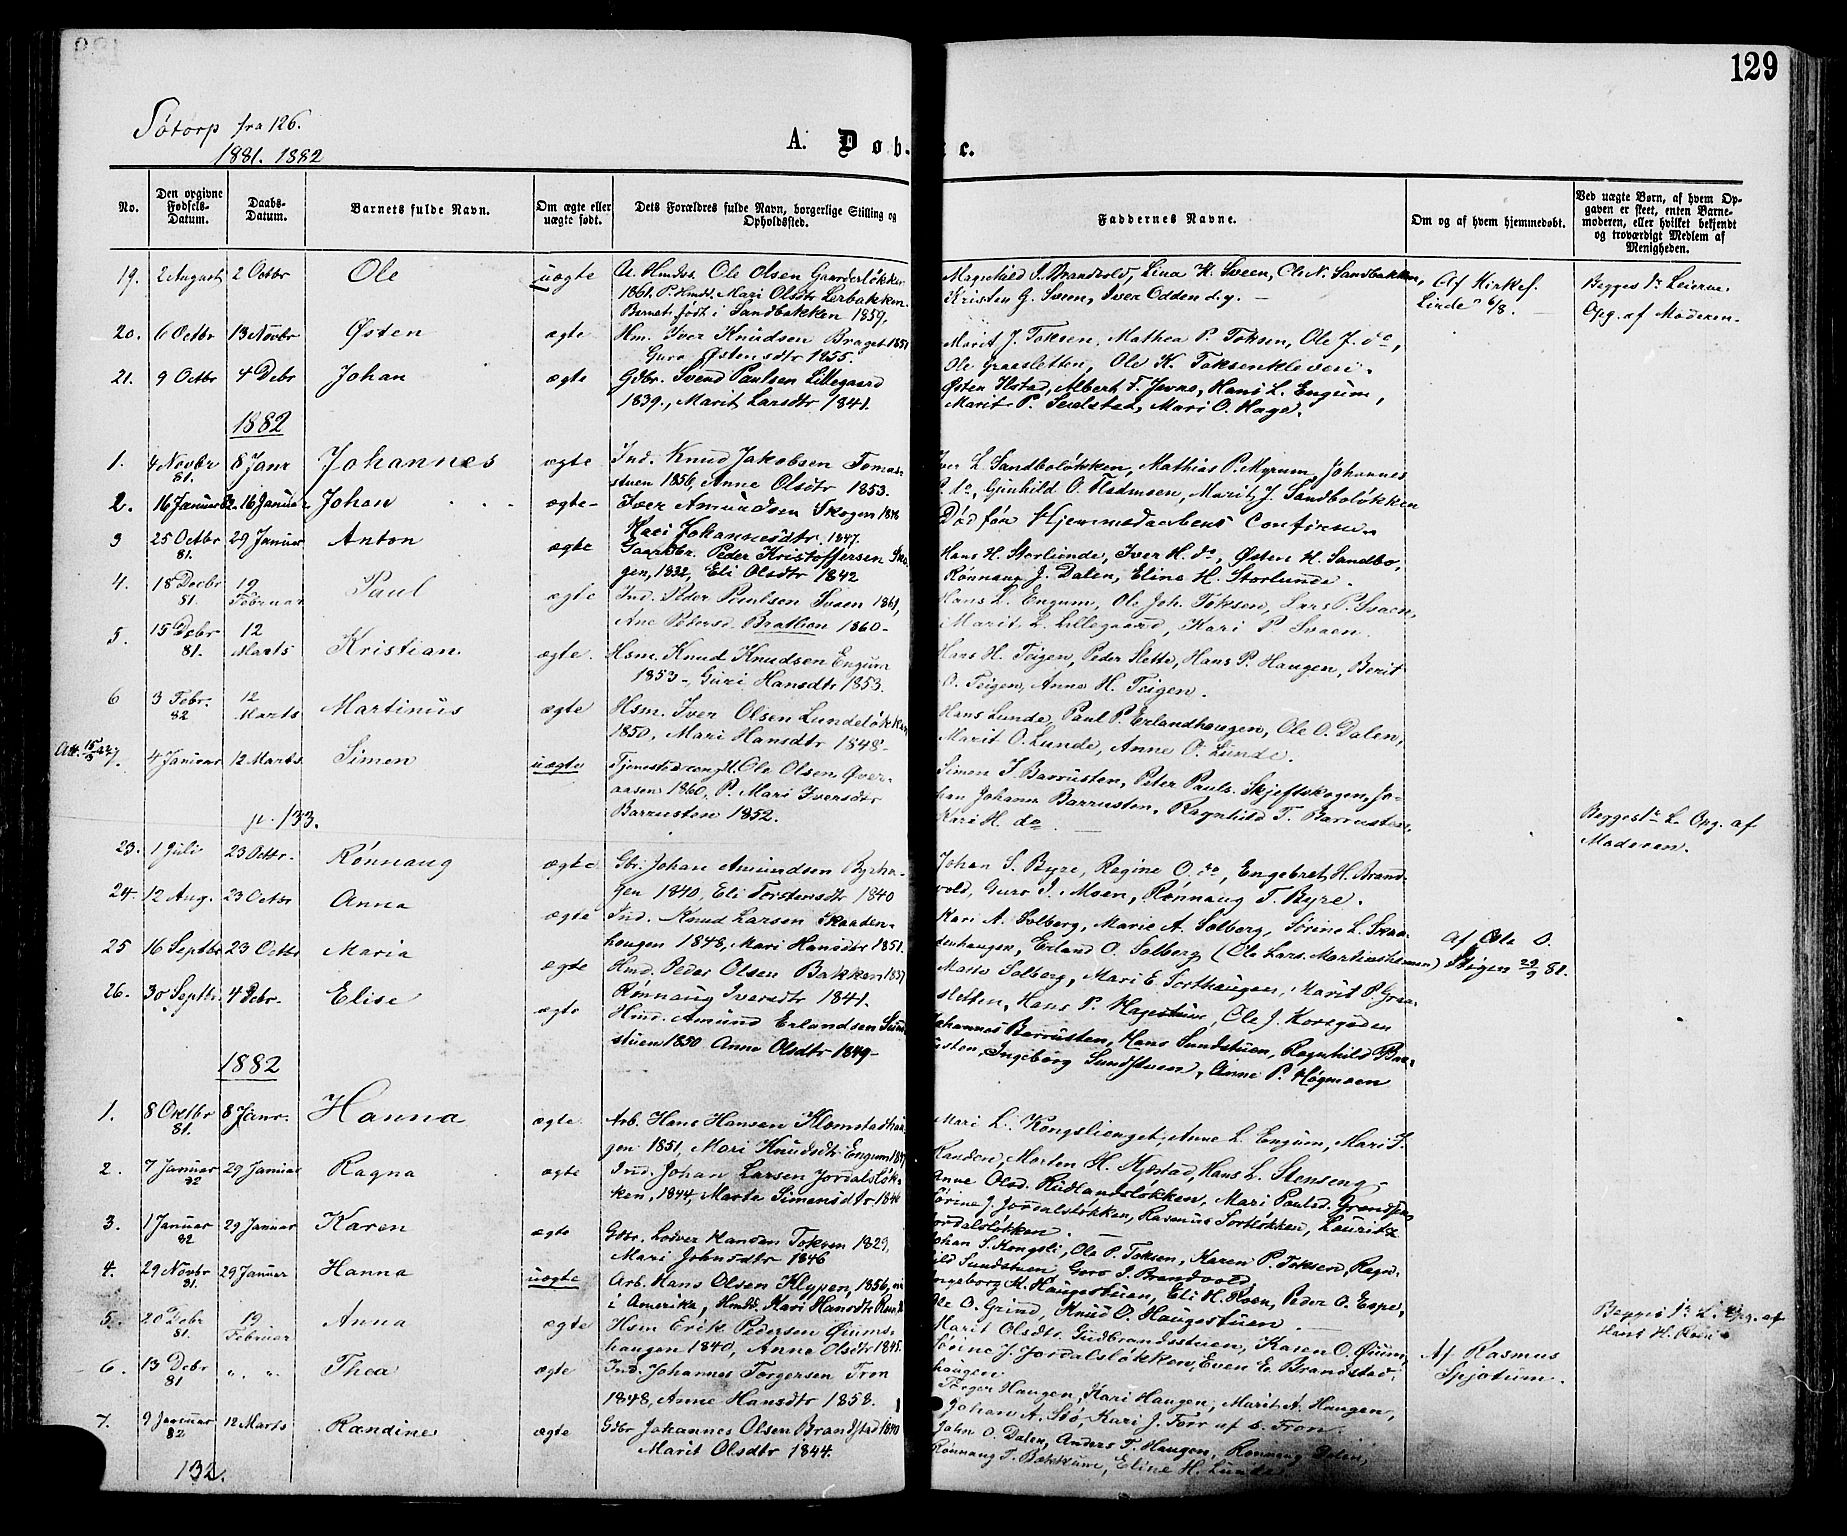 129
Sötorp fra 126.
1881. 1882
A. Døbte.
No.
Den opgivne Fødsels-Datum.
Daabs-Datum.
Barnets fulde Navn.
Om ægte eller uægte født.
Dets Forældres fulde Navn, borgerlige Stilling og Opholdssted.
Faddernes Navne.
Om og af hvem hjemmedøbt.
Ved uægte Børn, af hvem Opgaven er skeet, enten Barnemoderen, eller hvilket bekjendt og troværdigt Medlem af Menigheden.
19. 2 August 2 Octbr Ole uægte U. Hmds. Ole Olsen Gaarderløkken Magnhild J. Brandvold, Lina H. Sveen, Ole N. Sandbakken, Af Kirkes. Begges 1ste Leierm.
1861. P. Hmdt. Mari Olsdtr Lerbakken. Kristen G. Sveen, Iver Odden d.y. Linde 6/8. Opg. af Moderen.
Barnet født i Sandbakken 1859.
20. 6 Octbr 13 Novbr Østen ægte Hm. Iver Knudsen Braget 1851 Marit J. Toksen, Mathea P. Toksen, Ole J. do,
Guro Østensdtr 1855. Ole Graasletten, Ole K. Toksenkleven.
21. 9 Octbr 4 Debr Johan ægte Gdbr. Svend Paulsen Lillegaard Østen Ilstad, Albert T. Jevne, Hans L. Engum,
1839., Marit Larsdtr 1841. Marit P. Sulstad, Mari O. Hage.
1882
1. 4 Novbr 81. 8 Janr Johannes ægte Ind. Knud Jakobsen Tomas- Iver L. Sandboløkken, Mathias P. Myrum, Johannes
stuen 1856, Anne Olsdtr 1853. do, Gunhild O. Fladmoen, Marit J. Sandboløkken
2. 16 Januar 82. 16 Januar Johan ægte Iver Amundsen Skogen 1848 Død før Hjemmedaabens Confirm.
Kari Johannesdtr. 1847.
3 25 Octbr 81. 29 Januar Anton ægte Gaardbr. Peder Kristoffersen Ha- Hans H. Storlunde, Iver H. do, Østen H. Sandbo,
gen, 1832, Eli Olsdtr 1842 Rønnaug J. Dalen, Eline H. Storlunde.
4. 18 Decbr 81. 19 Februar Paul ægte Ind. Peder Paulsen Svaen 1861, Hans L. Engum, Ole Joh. Toksen, Lars P. Svaen,
Ane Petersd. Bratlien 1860 Marit L. Lillegaard, Kari P. Svaen.
5. 15 Debr 81. 12 Marts Kristian ægte. Hsm. Knud Knudsen Engum Hans H. Teigen, Peder Slette, Hans P. Haugen, Berit
1853 - Guri Hansdtr 1853. O. Teigen, Anne H. Teigen.
6 3 Febr. 82 12 Marts Martinus ægte Hsm. Iver Olsen Lundeløkken Hans Lunde, Paul P. Erlandhaugen, Ole O. Dalen,
1850, Mari Hansdtr 1848 Marit O. Lunde, Anne O. Lunde.
7. 4 Januar 12 Marts. Simen uægte Tjenestedreng U. Ole Olsen Øver- Simen I. Barrusten, Peter Pauls. Skjefteskogen, Jo-
aasen 1860, P. Mari Iversdtr han Johans Barrusten, Ragnhild T. Barrusten, Begges 1ste L. Opg. af
Barrusten 1852. Kari H. do Moderen.
p. 133.
23. 1 Juli 23 Octbr. Rønnaug ægte Gbr. Johan Amundsen Byrha- Johan S. Byre, Regine O. do, Engebret H. Brand-
gen 1840, Eli Torstensdtr 1840 vold, Guro I. Moen, Rønnaug T. Byre.
24. 12 Aug. 23 Octbr Anna ægte Ind. Knud Larsen Skaaden- Kari A. Solberg, Marie A. Solberg, Sørine L. Skaa-
haugen 1848, Mari Hansdtr 1851. denhaugen, Erland O. Solberg (Ole Lars. Martinshaugen) Af Ole O. Stigen 29/9 81.
25 16 Septbr 23 Octbr Maria ægte Hmd. Peder Olsen Bakken 1837 Marte Solberg, Mari E. Sorthaugen, Marit P. Graa-
Rønnaug Iversdtr 1841. sletten, Hans P. Hagestuen, Ole J. Korsgaden
26. 30 Septbr 4 Debr. Elise ægte Hmd. Amund Erlandsen Sund- Johannes Barrusten, Hans Sundstuen, Ragnhild Bar-
stuen 1850 Anne Olsdtr 1849 rusten, Ingeborg Sundstuen, Anne P. Høgmoen
1882
1. 8 Octbr 81. 8 Janr. Hanna ægte Arb. Hans Hansen Klomstadhau- Mari L. Kongslienget, Anne L. Engum, Mari I.
gen 1851, Mari Knudsdtr Engum Randen, Morten H. Hjestad, Hans L. Stenseng.
2. 7 Januar 82 29 Januar Ragna ægte Ind. Johan Larsen Jordalsløk- Anne Olsd. Rudlandsløkken, Mari Paulsd.
ken, 1844, Marte Simensdtr 1846 Sørine J. Jordalsløkken, Rasmus Sortløkken, Lauritz Jordalsløkken.
3. 1 Januar 82 29 Januar Karen ægte Gdbr. Lodver Hansen Toksen 1829, Johan S. Kongsli, Ole P. Toksen, Karen P. Toksen, Ragn-
Mari Johnsdtr 1846 hild Sundstuen, Guro I. Brandvold.
4. 29 Novbr 81. 29 Januar Hanna uægte Arb. Hans Olsen Klypen, 1856, nu Ingeborg K. Haugestuen, Eli H. Roen, Peder O. Espe,
i Amerika, Hmdt. Kari Hansdtr Ole O. Grind, Knud O. Haugestuen. Begges 1ste L. Opg. af Hans H.
5. 20 Debr 81. 19 Februar Anna ægte Hsm. Erik Pedersen Øiums- Marit Olsdtr. Gudbrandsstuen, Karen O. Øium,
haugen 1840, Anne Olsdtr 1845. Sørine J. Jordalsløkken, Even E. Brandstad,
6. 13 Debr 81 " " Thea ægte Ind. Johannes Torgersen Tron haugen Af Rasmus Spjotum.
1848, Anne Hansdtr 1858. Torger Haugen, Kari Haugen, Marit A. Haugen,
Johan A. Stø, Kari J. Torr af S. Fron.
7. 9 Januar 82 12 Marts Randine ægte Gdbr Johannes Olsen Brandstad 1840 John O. Dalen, Anders T. Haugen, Rønnaug Dalen,
Marit Olsdtr 1844. Rønnaug T. Bækkum, Eline H. Lunde
132.